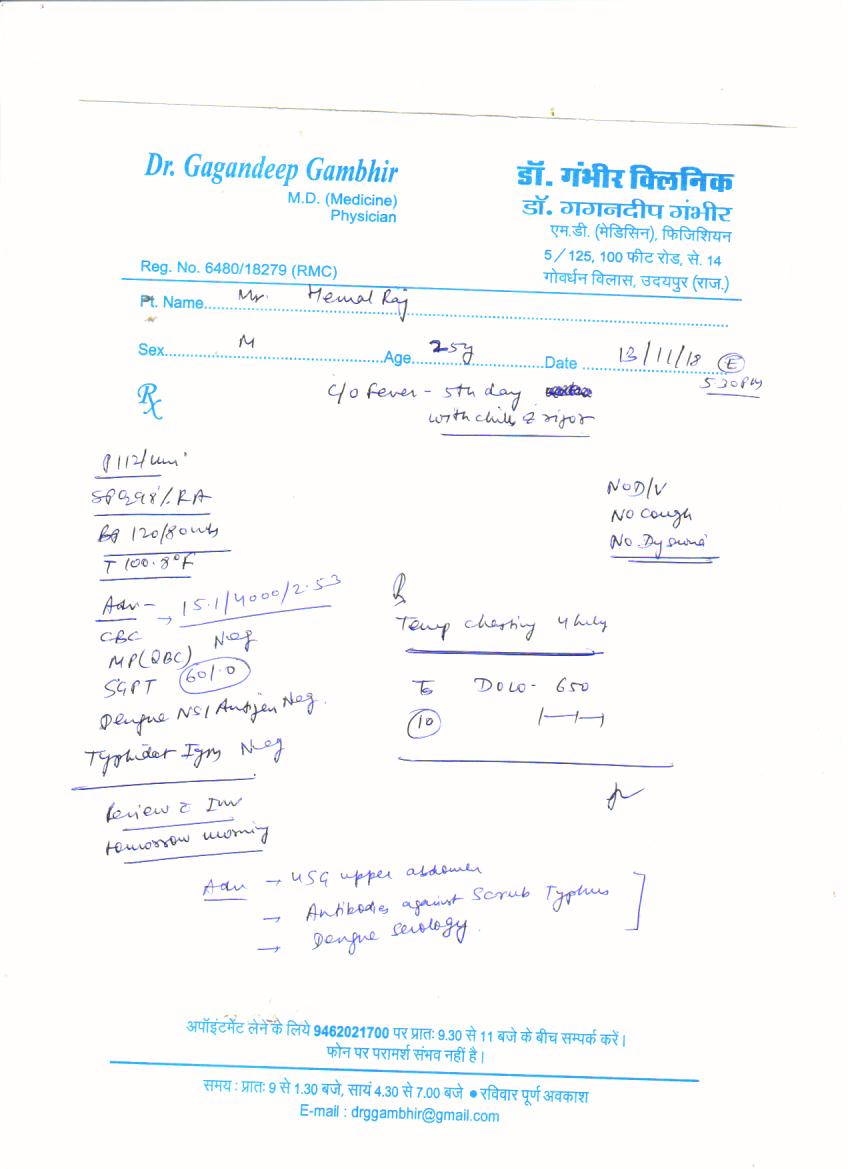 Dr. Gagandeep Gambhir
M.D. (Medicine)
Physician
Reg. No. 6480/18279 (RMC)
डॉ. गंभीर क्लिनिक
डॉ. गगनदीप गंभीर
एम.डी. (मेडिसिन), फिजिशियन
5/125, 100 फीट रोड, से. 14
गोवर्धन विलास, उदयपुर (राज.)
Pt. Name Mr. Hemal Raj
Sex M Age 25y Date 13/11/18 (E)
5.30PM
Rx c/o Fever - 5th day
with chills & rigor
P 112/min
SPO2 98% RA
BP 120/80
T 100.8°F
No D/V
No Cough
No Dysuria
Adv - → 15.1/4000/2.53
CBC
MP(QBC) Neg
SGPT 60
Dengue NS1 Antigen Neg.
Typhidot Igm Neg
Review c Inv
tomorrow morning
Rx
Temp charting 4 hrly
DOLO- 650
(10)
Adv → USG upper abdomen
→ Antibodies against Scrub Typhus
→ Dengue serology.
अपॉइंटमेंट लेने के लिये 9462021700 पर प्रातः 9.30 से 11 बजे के बीच सम्पर्क करें।
फोन पर परामर्श संभव नहीं है।
समय : प्रातः 9 से 1.30 बजे, सायं 4.30 से 7.00 बजे ● रविवार पूर्ण अवकाश
E-mail : drggambhir@gmail.com